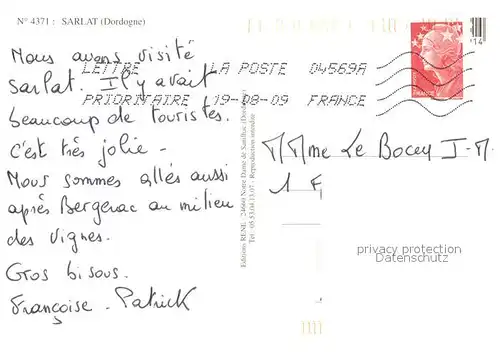 N° 4371 : SARLAT (Dordogne)
Nous avons visité
Sarlat. Il y avait
beaucoup de touristes.
C'est très jolie -
Nous sommes allés aussi
après Bergerac au milieu
des vignes.
Gros bisous.
Françoise - Patrick
LETTRE LA POSTE 04569A
PRIORITAIRE 19-08-09 FRANCE
14
FRANCE
Editions RENE - 24660 Notre Dame de Sanilhac (Dordogne)
Tél : 05.53.04.13.07 - Reproduction interdite
M/Mme Le Bocey J-M.
1
privacy protection
Datenschutz